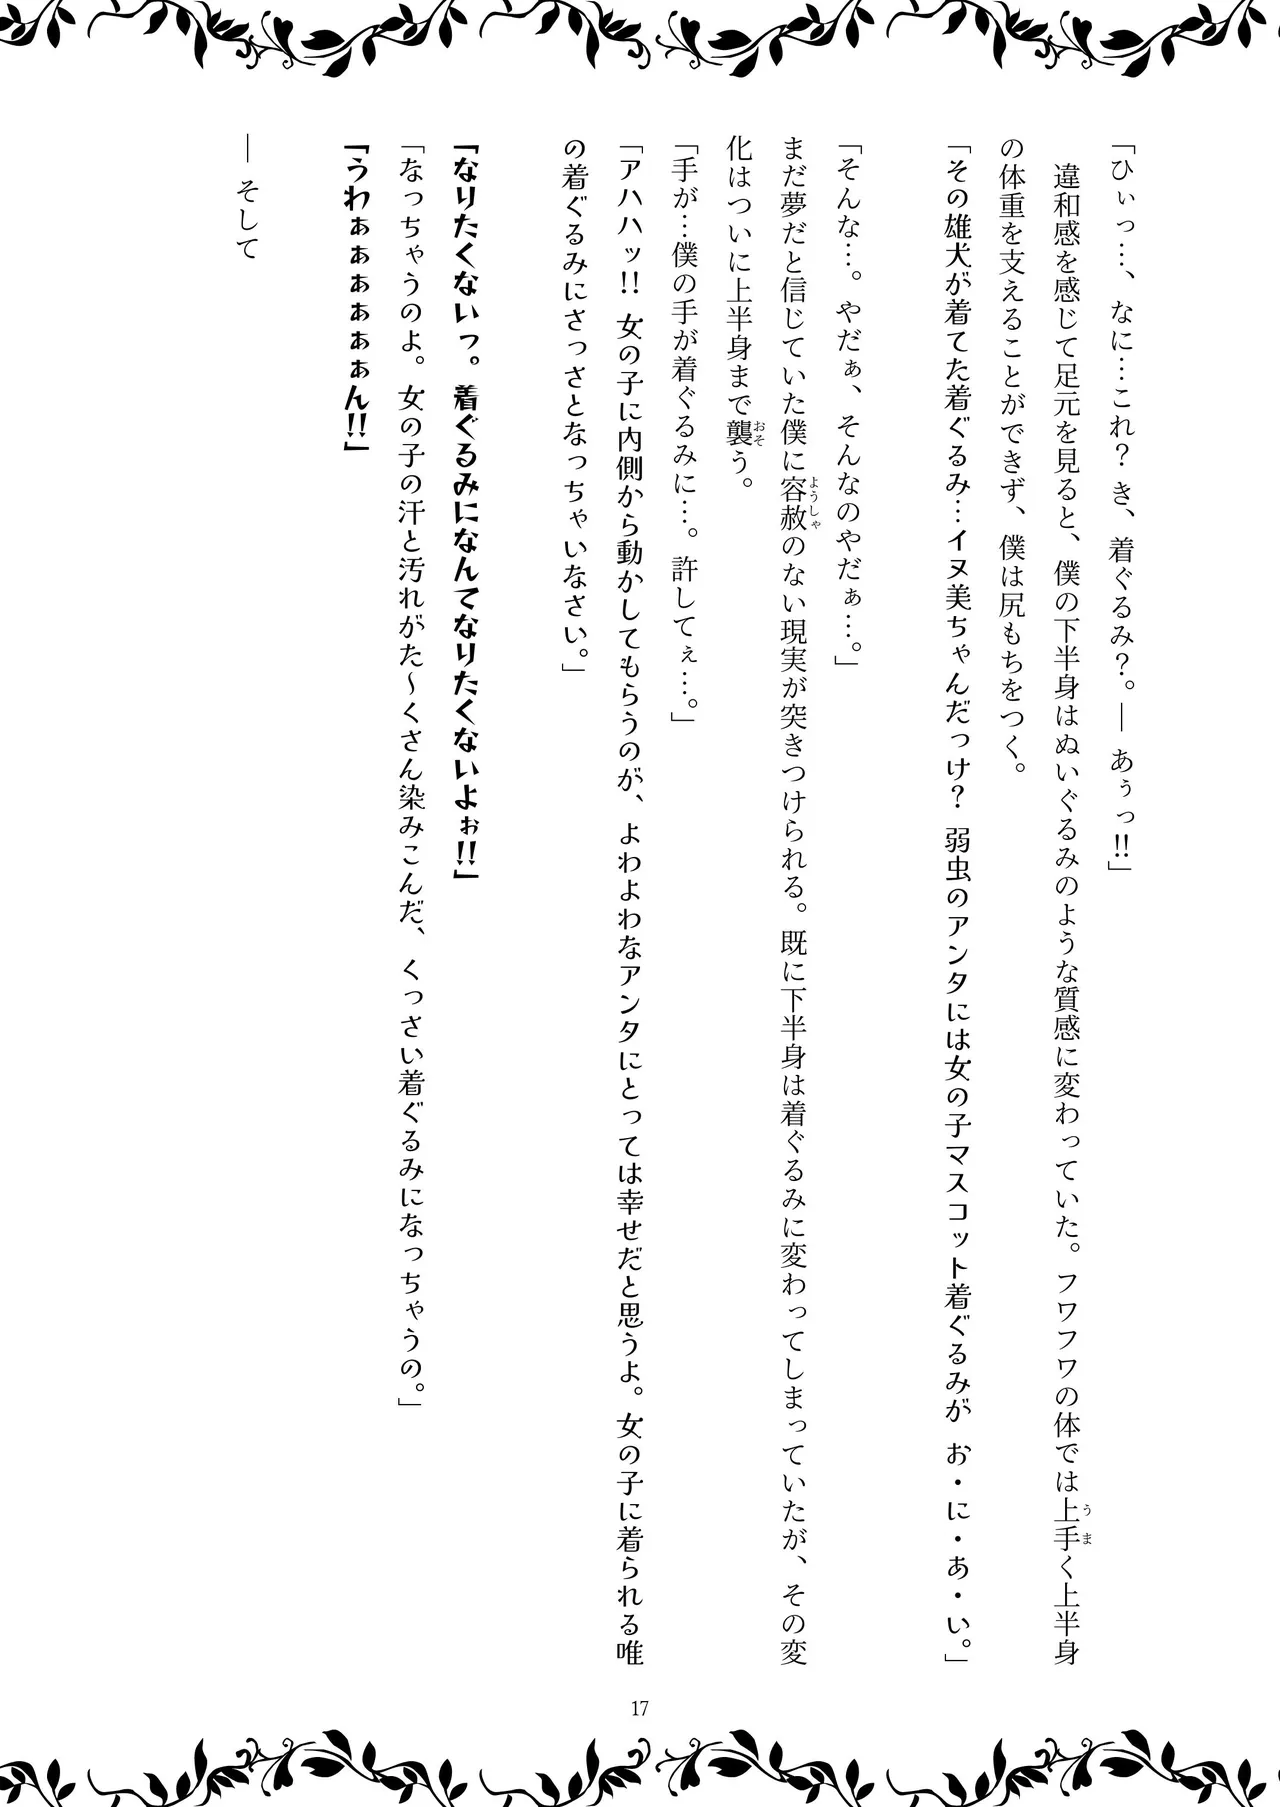 「ひぃっ…、なに…これ？き、着ぐるみ？。― あぅっ!!」
違和感を感じて足元を見ると、僕の下半身はぬいぐるみのような質感に変わっていた。フワフワの体では上手く上半身
の体重を支えることができず、僕は尻もちをつく。
「その雄犬が着てた着ぐるみ…イヌ美ちゃんだっけ？ 弱虫のアンタには女の子マスコット着ぐるみが お・に・あ・い。」
「そんな…。やだぁ、そんなのやだぁ…。」
まだ夢だと信じていた僕に容赦のない現実が突きつけられる。既に下半身は着ぐるみに変わってしまっていたが、その変
化はついに上半身まで襲う。
「手が…僕の手が着ぐるみに…。許してぇ…。」
「アハハッ!! 女の子に内側から動かしてもらうのが、よわよわなアンタにとっては幸せだと思うよ。女の子に着られる唯
の着ぐるみにさっさとなっちゃいなさい。」
「なりたくないっ。着ぐるみになんてなりたくないよぉ!!」
「なっちゃうのよ。女の子の汗と汚れがた〜くさん染みこんだ、くっさい着ぐるみになっちゃうの。」
「うわぁぁぁぁぁぁん!!」
― そして
17